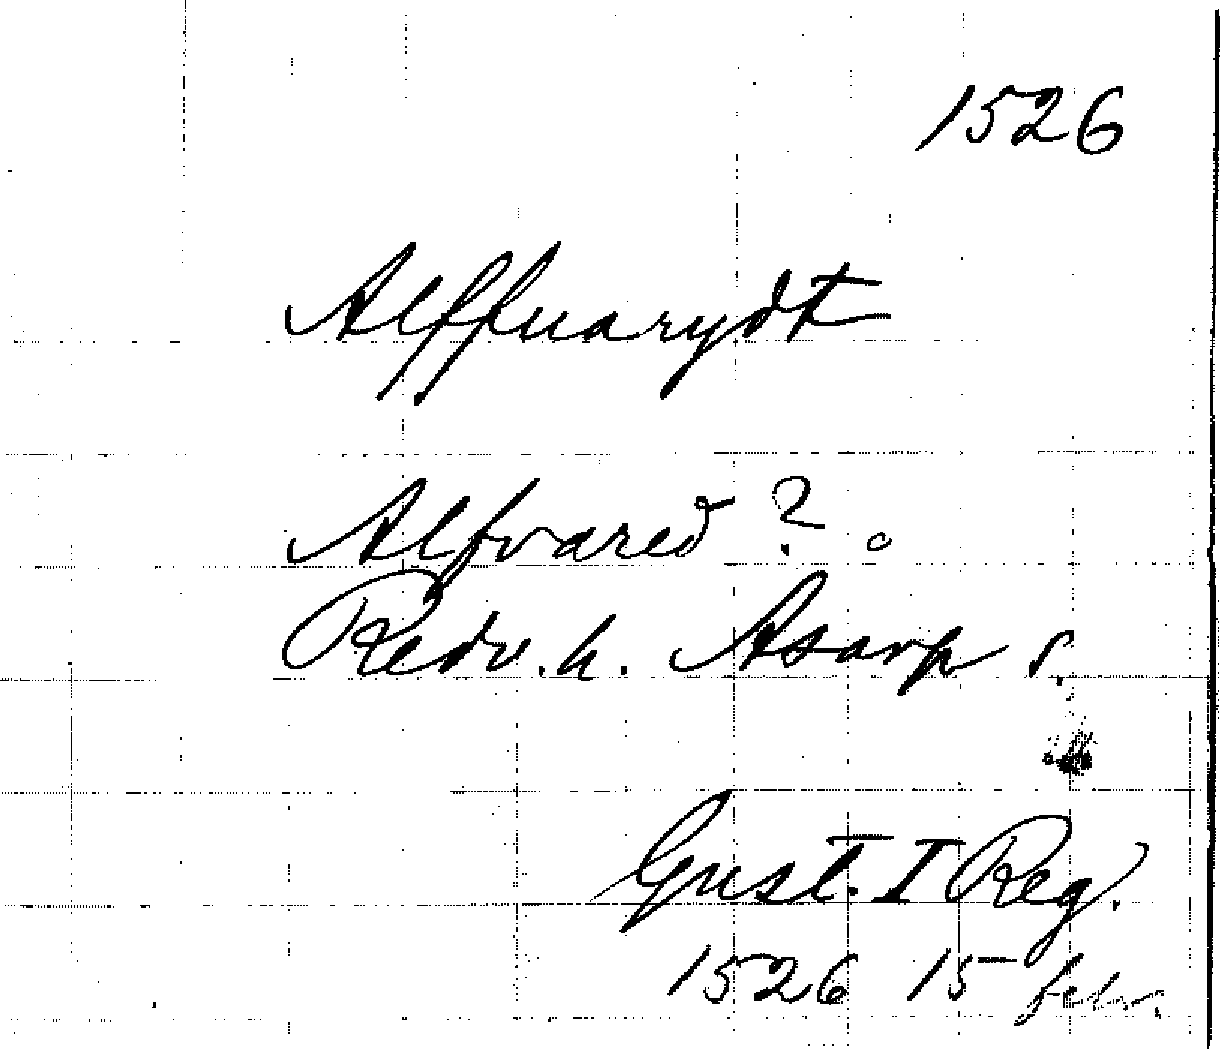 1526
Alffuarydt
Alfvared ?.
Redv. h. Asarp s.
Gust. I Reg.
1526 15 febr.